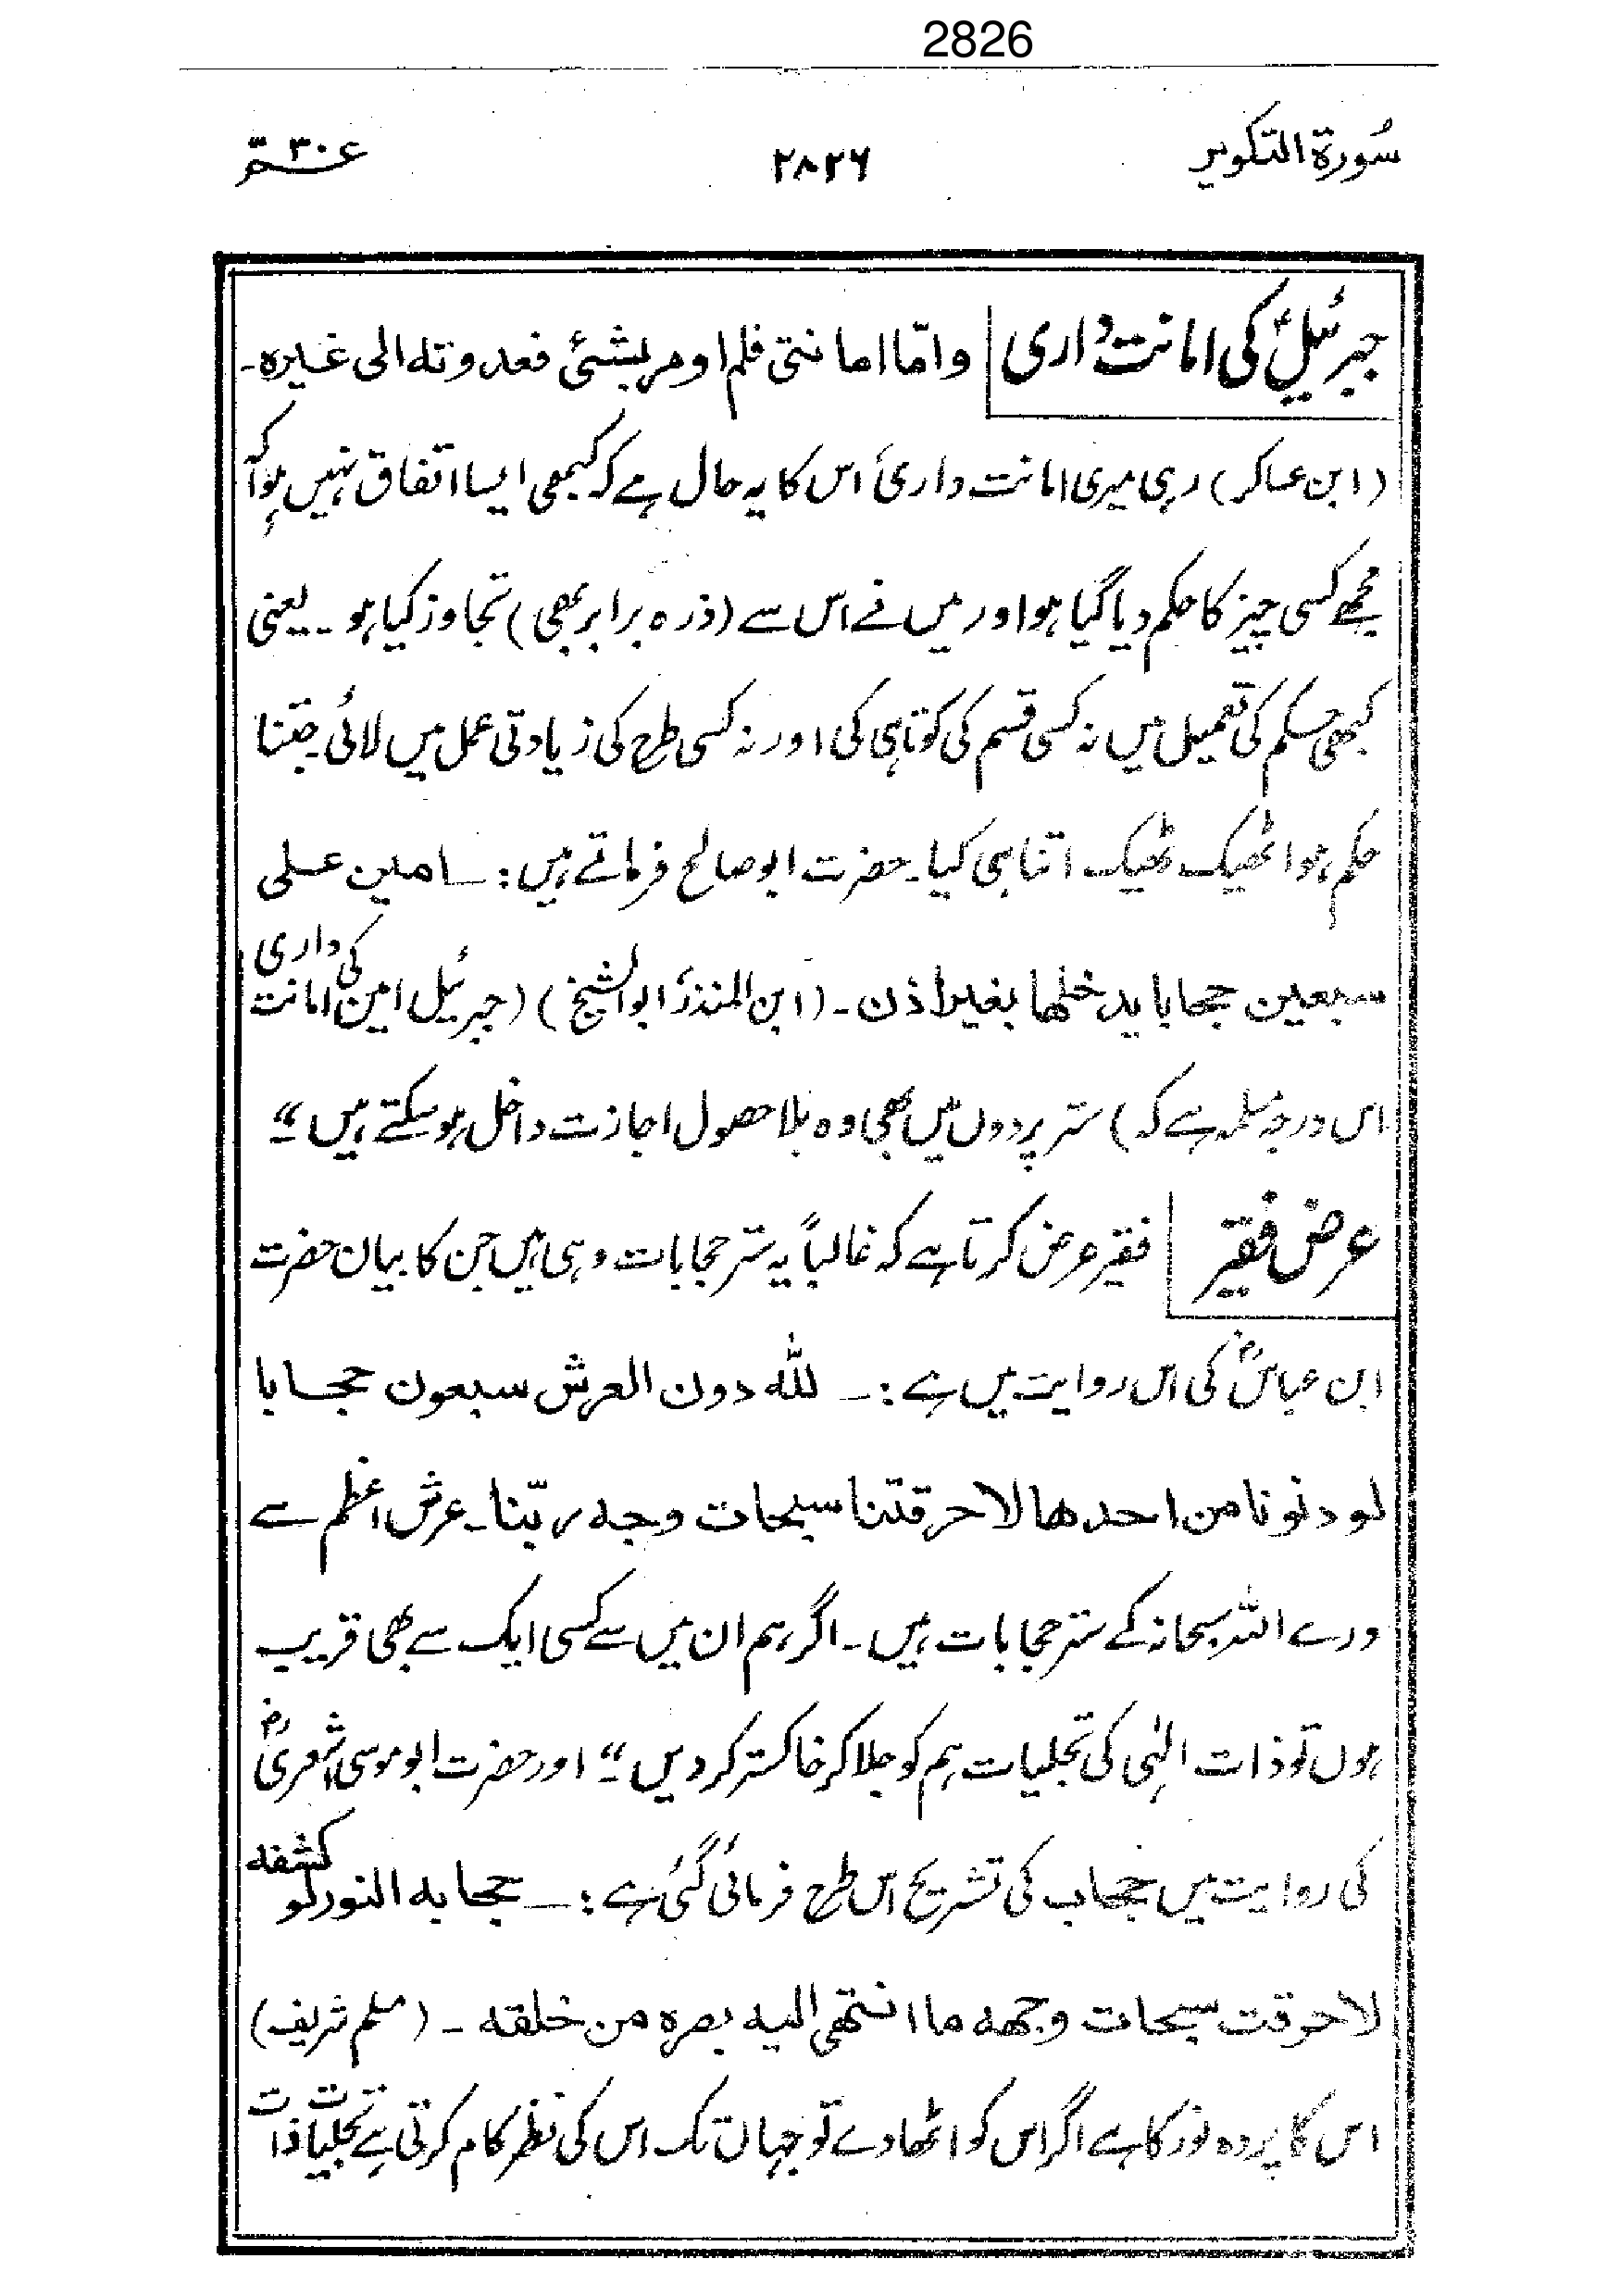 2826
سُورۃ التکویر ۲۸۲۶ عمّ ۳۰
جبرئیلؑ کی امانت داری وامّا امانتی فلم اومر بشئ فعدوتہ الی غیرہ۔
(ابن عساکر) رہی میری امانت داری، اس کا یہ حال ہے کہ کبھی ایسا اتفاق نہیں ہوا کہ
مجھے کسی چیز کا حکم دیا گیا ہو اور میں نے اس سے (ذرہ برابر بھی) تجاوز کیا ہو۔ یعنی
کبھی حکم کی تعمیل میں نہ کسی قسم کی کوتاہی کی اور نہ کسی طرح کی زیادتی عمل میں لائی۔ جتنا
حکم ہوا ٹھیک ٹھیک اتنا ہی کیا۔ حضرت ابو صالح فرماتے ہیں:۔ امین علی
سبعین حجابا یدخلھا بغیر اذن۔ (ابن المنذر، ابو الشیخ) (جبرئیل امین کی امانت داری
اس درجہ مسلمہ ہے کہ) ستر پردوں میں بھی وہ بلا حصول اجازت داخل ہو سکتے ہیں۔“
عرض فقیر فقیر عرض کرتا ہے کہ غالباً یہ ستر حجابات وہی ہیں جن کا بیان حضرت
ابن عباسؓ کی اس روایت میں ہے:۔ للّٰہ دون العرش سبعون حجابا
لو دنونا من احدھا لاحرقتنا سبحات وجہ ربّنا۔ عرش اعظم سے
ورے اللہ سبحانہ کے ستر حجابات ہیں۔ اگر ہم ان میں سے کسی ایک سے بھی قریب
ہوں تو ذات الٰہی کی تجلیات ہم کو جلا کر خاکستر کر دیں۔“ اور حضرت ابو موسی اشعریؓ
کی روایت میں حجاب کی تشریح اس طرح فرمائی گئی ہے:۔ حجابہ النور لو کشفہ
لاحرقت سبحات وجھہ ما انتھی الیہ بصرہ من خلقہ۔ (مسلم شریف)
اس کا پردہ نور کا ہے اگر اس کو اٹھا دے تو جہاں تک اس کی نظر کام کرتی ہے تجلیات ذات